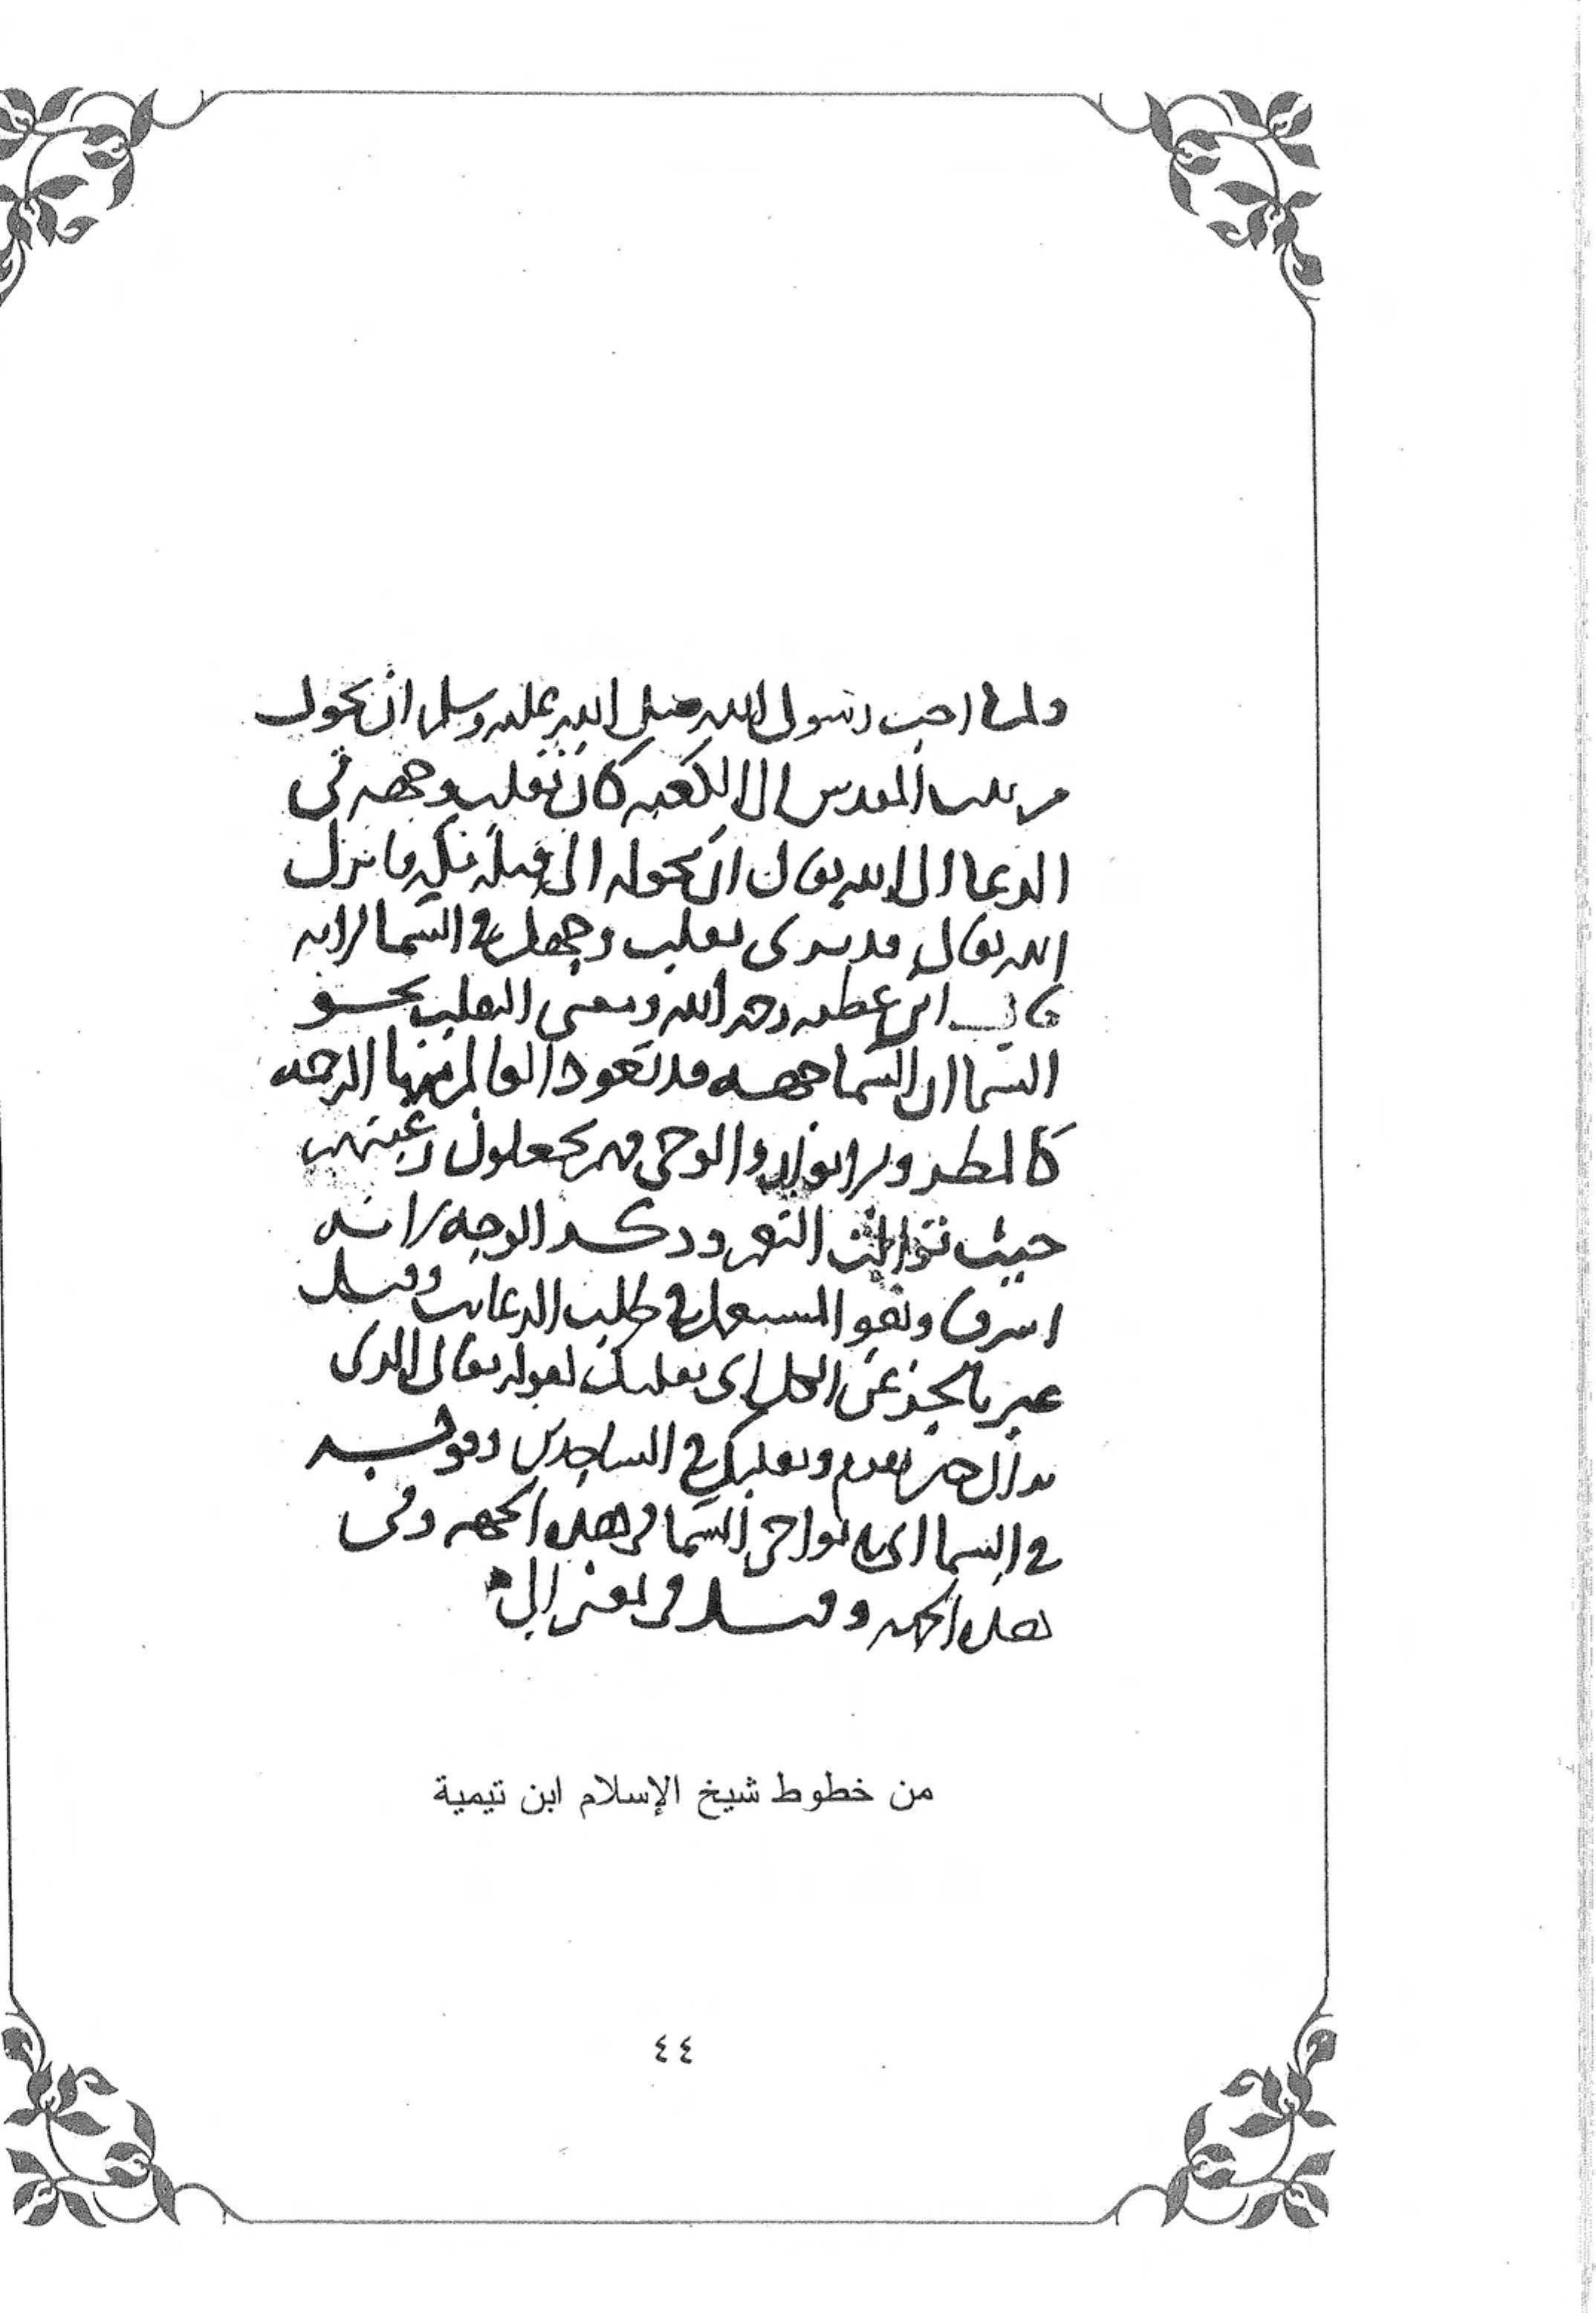 ولما احب رسول الله صلى الله عليه وسلم ان يحول
من بيت المقدس الى الكعبه كان تقلب وجهه في
الدعا الى الله تعالى ان يحوله الى قبلة مكه فانزل
الله تعالى قد نرى تقلب وجهك في السما الايه
قال ابن عطيه رحمه الله ومعنى التقلب نحو
السما ان السما جهه قد تعود العالم منها الرحمه
كالمطر والانوار والوحي فهم يجعلون رغبتهم
حيث توالت النعم وذكر الوجه لانه
اشرف وهو المستعمل في طلب الرغايب وقيل
عبر بالجز عن الكل اي تقلبك لقوله تعالى الذي
يراك حين تقوم وتقلبك في الساجدين وقوله
في السما اي في نواحي السما في هذه الجهه وفي
هذه الجهه وقيل في بمعنى الى
من خطوط شيخ الإسلام ابن تيمية
٤٤